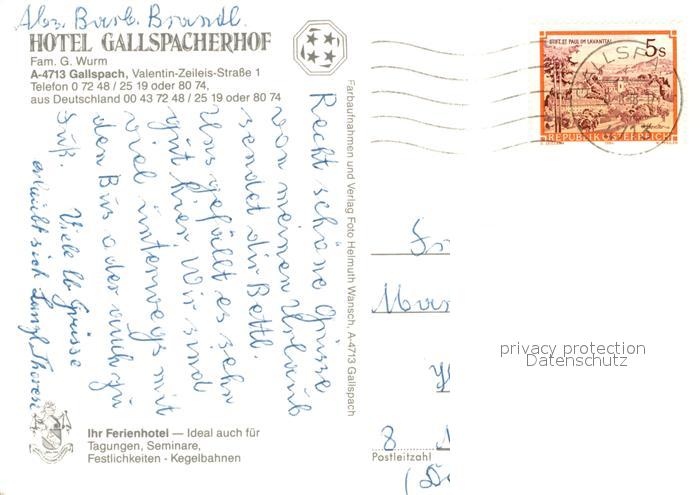 Abs. Barb. Brandl.
HOTEL GALLSPACHERHOF
Fam. G. Wurm
A-4713 Gallspach, Valentin-Zeileis-Straße 1
Telefon 0 72 48 / 25 19 oder 80 74,
aus Deutschland 00 43 72 48 / 25 19 oder 80 74
Recht schöne Grüsse
von meinen Urlaub
sendet dir Bettl.
Uns gefällt es sehr
gut hier. Wir sind
viel unterwegs mit
den Bus oder auch zu
Fuß. Viele lb Grüsse
erlaubt sich Therese
Ihr Ferienhotel — Ideal auch für
Tagungen, Seminare,
Festlichkeiten - Kegelbahnen
Farbaufnahmen und Verlag Foto Helmuth Wansch, A-4713 Gallspach
STIFT ST. PAUL IM LAVANTTAL
5 S
REPUBLIK ÖSTERREICH
Fr
Mar
8
Postleitzahl
privacy protection
Datenschutz